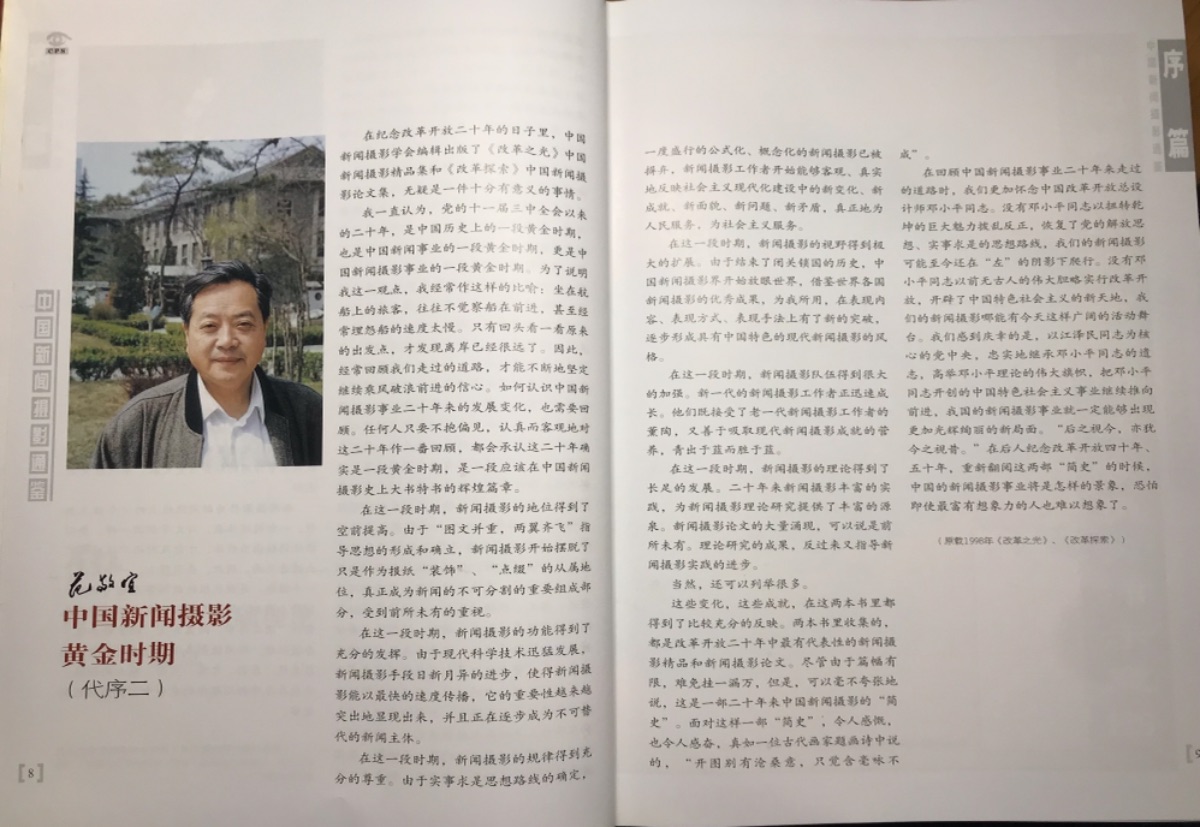 中国新闻摄影通鉴
范敬宜
中国新闻摄影
黄金时期
（代序二）
[8]
在纪念改革开放二十年的日子里，中国
新闻摄影学会编辑出版了《改革之光》中国
新闻摄影精品集和《改革探索》中国新闻摄
影论文集，无疑是一件十分有意义的事情。
我一直认为，党的十一届三中全会以来
的二十年，是中国历史上的一段黄金时期，
也是中国新闻事业的一段黄金时期，更是中
国新闻摄影事业的一段黄金时期。为了说明
我这一观点，我经常作这样的比喻：坐在航
船上的旅客，往往不觉察船在前进，甚至经
常埋怨船的速度太慢。只有回头看一看原来
的出发点，才发现离岸已经很远了。因此，
经常回顾我们走过的道路，才能不断地坚定
继续乘风破浪前进的信心。如何认识中国新
闻摄影事业二十年来的发展变化，也需要回
顾。任何人只要不抱偏见，认真而客观地对
这二十年作一番回顾，都会承认这二十年确
实是一段黄金时期，是一段应该在中国新闻
摄影史上大书特书的辉煌篇章。
在这一段时期，新闻摄影的地位得到了
空前提高。由于“图文并重，两翼齐飞”指
导思想的形成和确立，新闻摄影开始摆脱了
只是作为报纸“装饰”、“点缀”的从属地
位，真正成为新闻的不可分割的重要组成部
分，受到前所未有的重视。
在这一段时期，新闻摄影的功能得到了
充分的发挥。由于现代科学技术迅猛发展，
新闻摄影手段日新月异的进步，使得新闻摄
影能以最快的速度传播，它的重要性越来越
突出地显现出来，并且正在逐步成为不可替
代的新闻主体。
在这一段时期，新闻摄影的规律得到充
分的尊重。由于实事求是思想路线的确定，
一度盛行的公式化、概念化的新闻摄影已被
摒弃，新闻摄影工作者开始能够客观、真实
地反映社会主义现代化建设中的新变化、新
成就、新面貌、新问题、新矛盾，真正地为
人民服务，为社会主义服务。
在这一段时期，新闻摄影的视野得到极
大的扩展。由于结束了闭关锁国的历史，中
国新闻摄影界开始放眼世界，借鉴世界各国
新闻摄影的优秀成果，为我所用，在表现内
容、表现方式、表现手法上有了新的突破，
逐步形成具有中国特色的现代新闻摄影的风
格。
在这一段时期，新闻摄影队伍得到很大
的加强。新一代的新闻摄影工作者正迅速成
长。他们既接受了老一代新闻摄影工作者的
熏陶，又善于吸取现代新闻摄影成就的营
养，青出于蓝而胜于蓝。
在这一段时期，新闻摄影的理论得到了
长足的发展。二十年来新闻摄影丰富的实
践，为新闻摄影理论研究提供了丰富的源
泉。新闻摄影论文的大量涌现，可以说是前
所未有。理论研究的成果，反过来又指导新
闻摄影实践的进步。
当然，还可以列举很多。
这些变化，这些成就，在这两本书里都
得到了比较充分的反映。两本书里收集的，
都是改革开放二十年中最有代表性的新闻摄
影精品和新闻摄影论文。尽管由于篇幅有
限，难免挂一漏万，但是，可以毫不夸张地
说，这是一部二十年来中国新闻摄影的“简
史”。面对这样一部“简史”，令人感慨，
也令人感奋，真如一位古代画家题画诗中说
的，“开图别有沧桑意，只觉含毫咏不
成”。
在回顾中国新闻摄影事业二十年来走过
的道路时，我们更加怀念中国改革开放总设
计师邓小平同志。没有邓小平同志以扭转乾
坤的巨大魅力拨乱反正，恢复了党的解放思
想、实事求是的思想路线，我们的新闻摄影
可能至今还在“左”的阴影下爬行。没有邓
小平同志以前无古人的伟大胆略实行改革开
放，开辟了中国特色社会主义的新天地，我
们的新闻摄影哪能有今天这样广阔的活动舞
台。我们感到庆幸的是，以江泽民同志为核
心的党中央，忠实地继承邓小平同志的遗
志，高举邓小平理论的伟大旗帜，把邓小平
同志开创的中国特色社会主义事业继续推向
前进，我国的新闻摄影事业就一定能够出现
更加光辉绚丽的新局面。“后之视今，亦犹
今之视昔。”在后人纪念改革开放四十年、
五十年，重新翻阅这两部“简史”的时候，
中国的新闻摄影事业将是怎样的景象，恐怕
即使最富有想象力的人也难以想象了。
（原载1998年《改革之光》、《改革探索》）
序篇